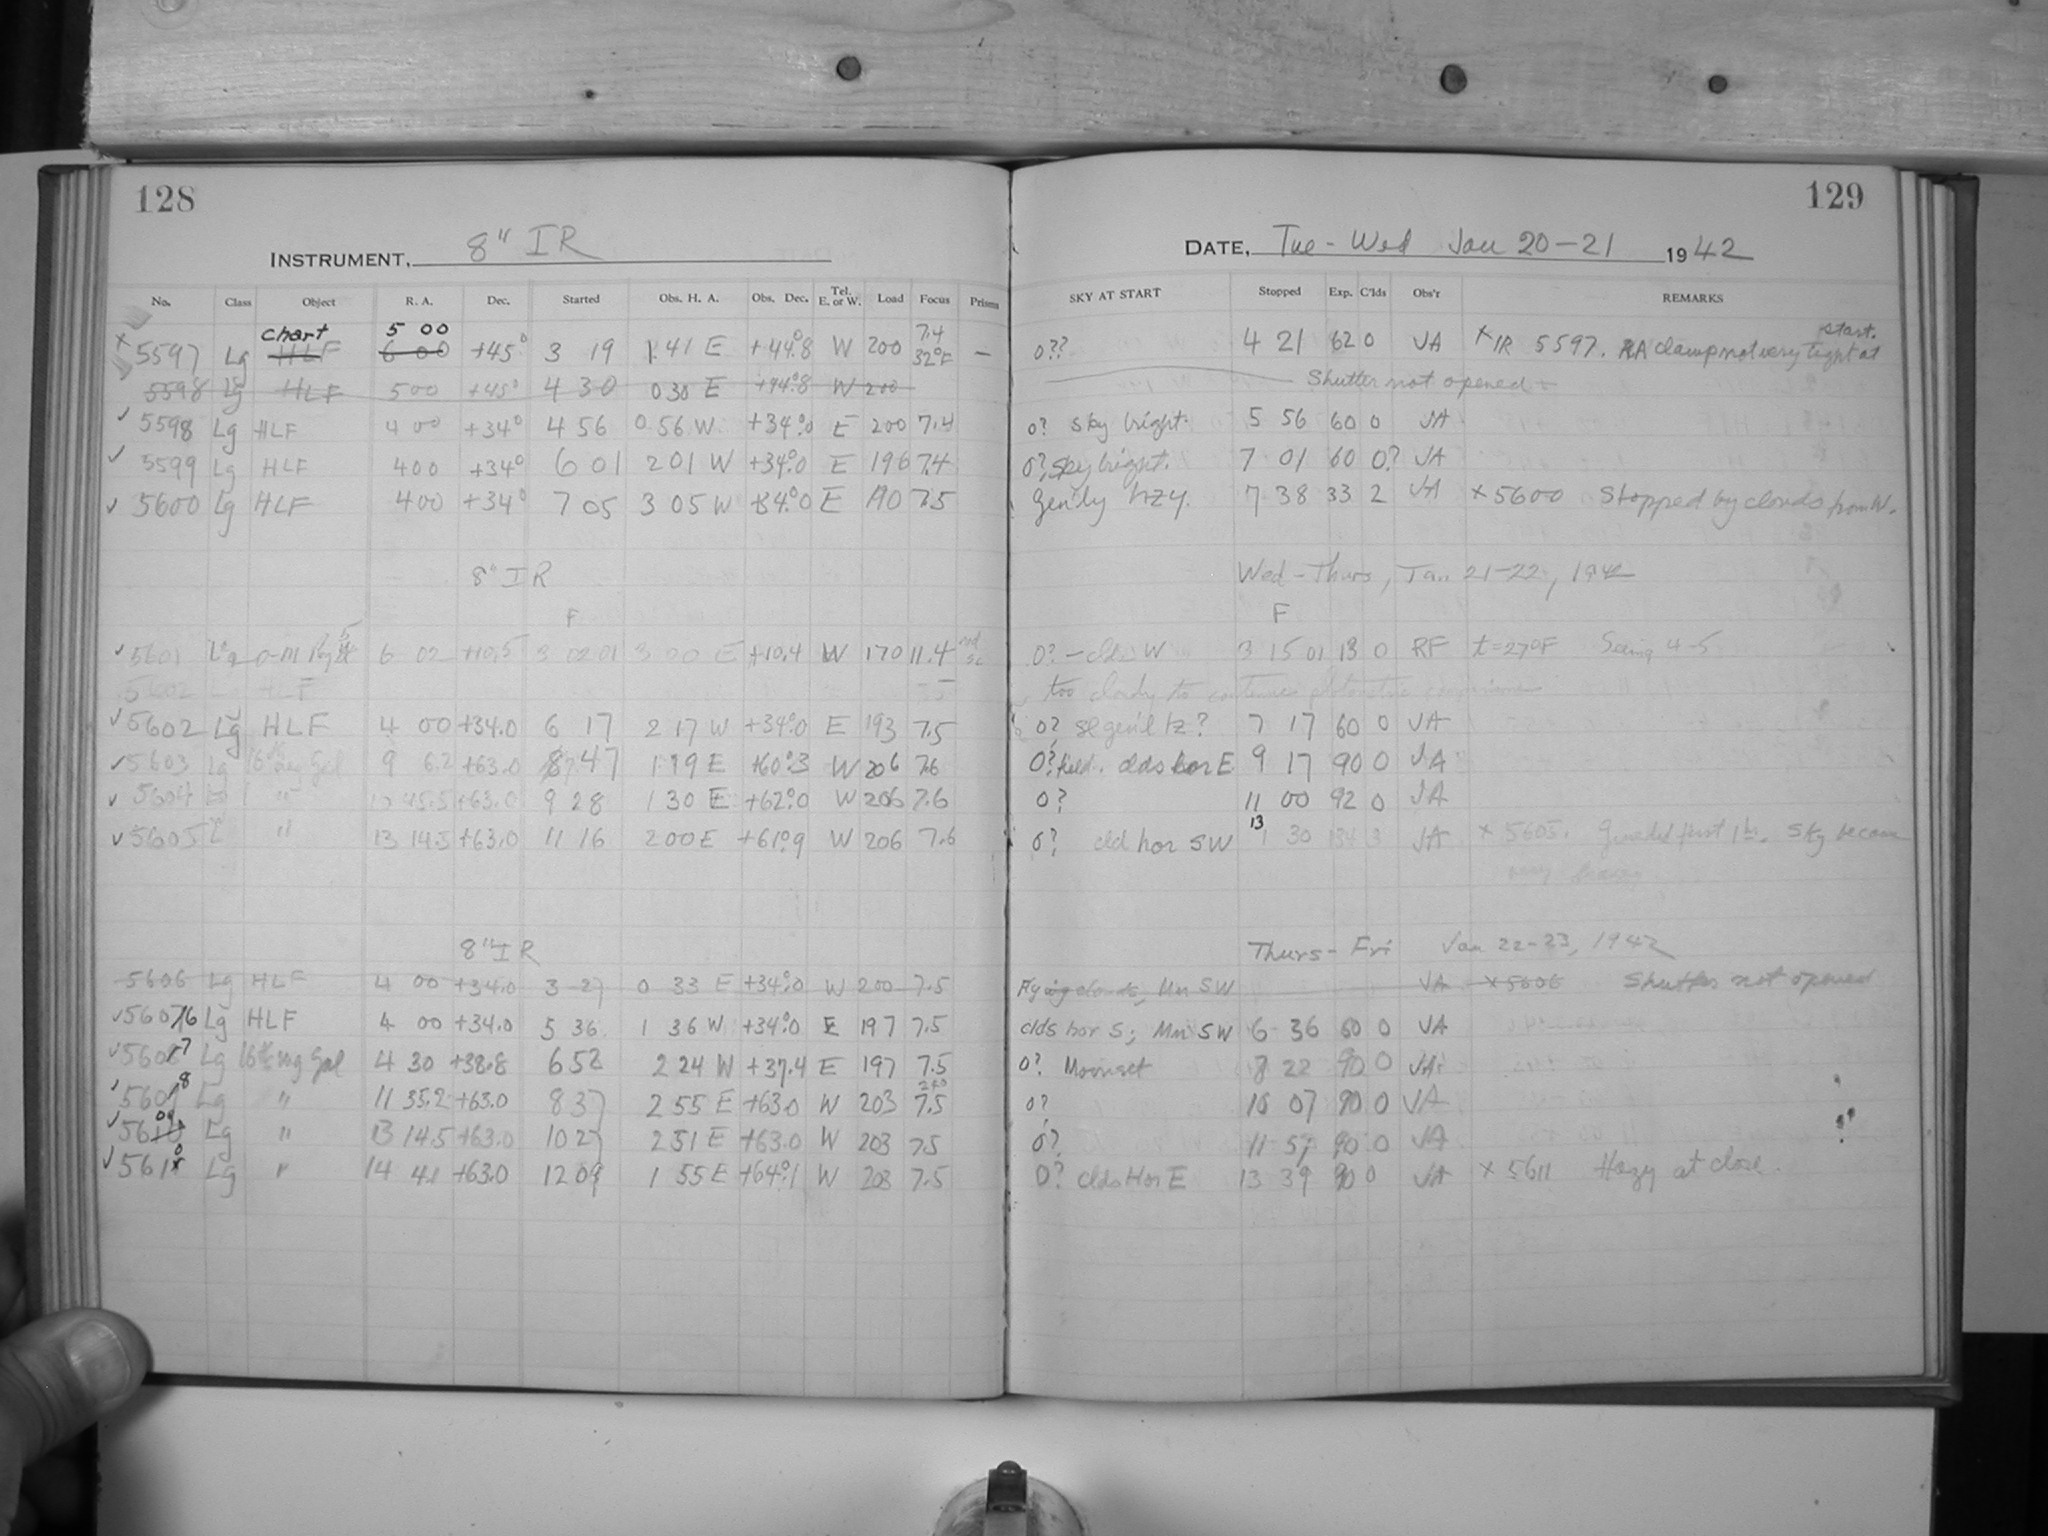 128
129
INSTRUMENT, 8" IR
DATE, Tue - Wed Jan 20-21 1942
No. Class Object R. A. Dec. Started Obs. H. A. Obs. Dec. Tel. E. or W. Load Focus Prisms SKY AT START Stopped Exp. C'lds Obs'r REMARKS
chart 5 00 7.4 start.
x 5597 Lg HLF 6 00 +45° 3 19 1 41 E +44°.8 W 200 32°F — 0?? 4 21 62 0 JA x IR 5597. RA clamp not very tight at
5598 Lg HLF 5 00 +45° 4 30 0 30 E +44°.8 W 200 Shutter not opened
✓ 5598 Lg HLF 4 00 +34° 4 56 0 56 W +34°.0 E 200 7.4 0? Sky bright. 5 56 60 0 JA
✓ 5599 Lg HLF 4 00 +34° 6 01 2 01 W +34°.0 E 196 7.4 0? Sky bright. 7 01 60 0? JA
✓ 5600 Lg HLF 4 00 +34° 7 05 3 05 W +34°.0 E 190 7.5 Gen'ly hzy. 7 38 33 2 JA x 5600 Stopped by clouds from W.
8" IR Wed - Thurs, Jan 21-22, 1942
F F
✓ 5601 6 02 +10.5 3 02 01 3 00 E +10.4 W 170 11.4 0? - clds W 3 15 01 13 0 RF t=27°F Seeing 4-5
5602 Lg HLF too cloudy to continue
✓ 5602 Lg HLF 4 00 +34.0 6 17 2 17 W +34°.0 E 193 7.5 0? sl gen'l hz? 7 17 60 0 JA
✓ 5603 Lg 16th mg Gal 9 6.2 +63.0 7 47 1 19 E +60°.3 W 206 7.6 0? field. clds hor E 9 17 90 0 JA
✓ 5604 Lg " 45.5 +63.0 9 28 1 30 E +62°.0 W 206 7.6 0? 11 00 92 0 JA
✓ 5605 L " 13 14.5 +63.0 11 16 2 00 E +61°.9 W 206 7.6 0? cld hor SW 13 30 134 3 JA x 5605. Guided first 1 hr. Sky became
very
8" IR Thurs - Fri Jan 22-23, 1942
5606 Lg HLF 4 00 +34.0 3 27 0 33 E +34°.0 W 200 7.5 Flying clouds, Mn SW JA x 5606 Shutter not opened
✓ 5607/6 Lg HLF 4 00 +34.0 5 36 1 36 W +34°.0 E 197 7.5 clds hor S; Mn SW 6 36 60 0 JA
✓ 5607 Lg 16th mg Gal 4 30 +38.8 6 52 2 24 W +37.4 E 197 7.5 0? Moonset 8 22 90 0 JA
✓ 5608 Lg " 11 35.2 +63.0 8 37 2 55 E +63.0 W 203 7.5 0? 10 07 90 0 JA
✓ 5609 Lg " 13 14.5 +63.0 10 27 2 51 E +63.0 W 203 7.5 0? 11 57 90 0 JA
✓ 5610 Lg " 14 41 +63.0 12 09 1 55 E +64°.1 W 203 7.5 0? clds Hor E 13 39 90 0 JA x 5611 Hazy at close.